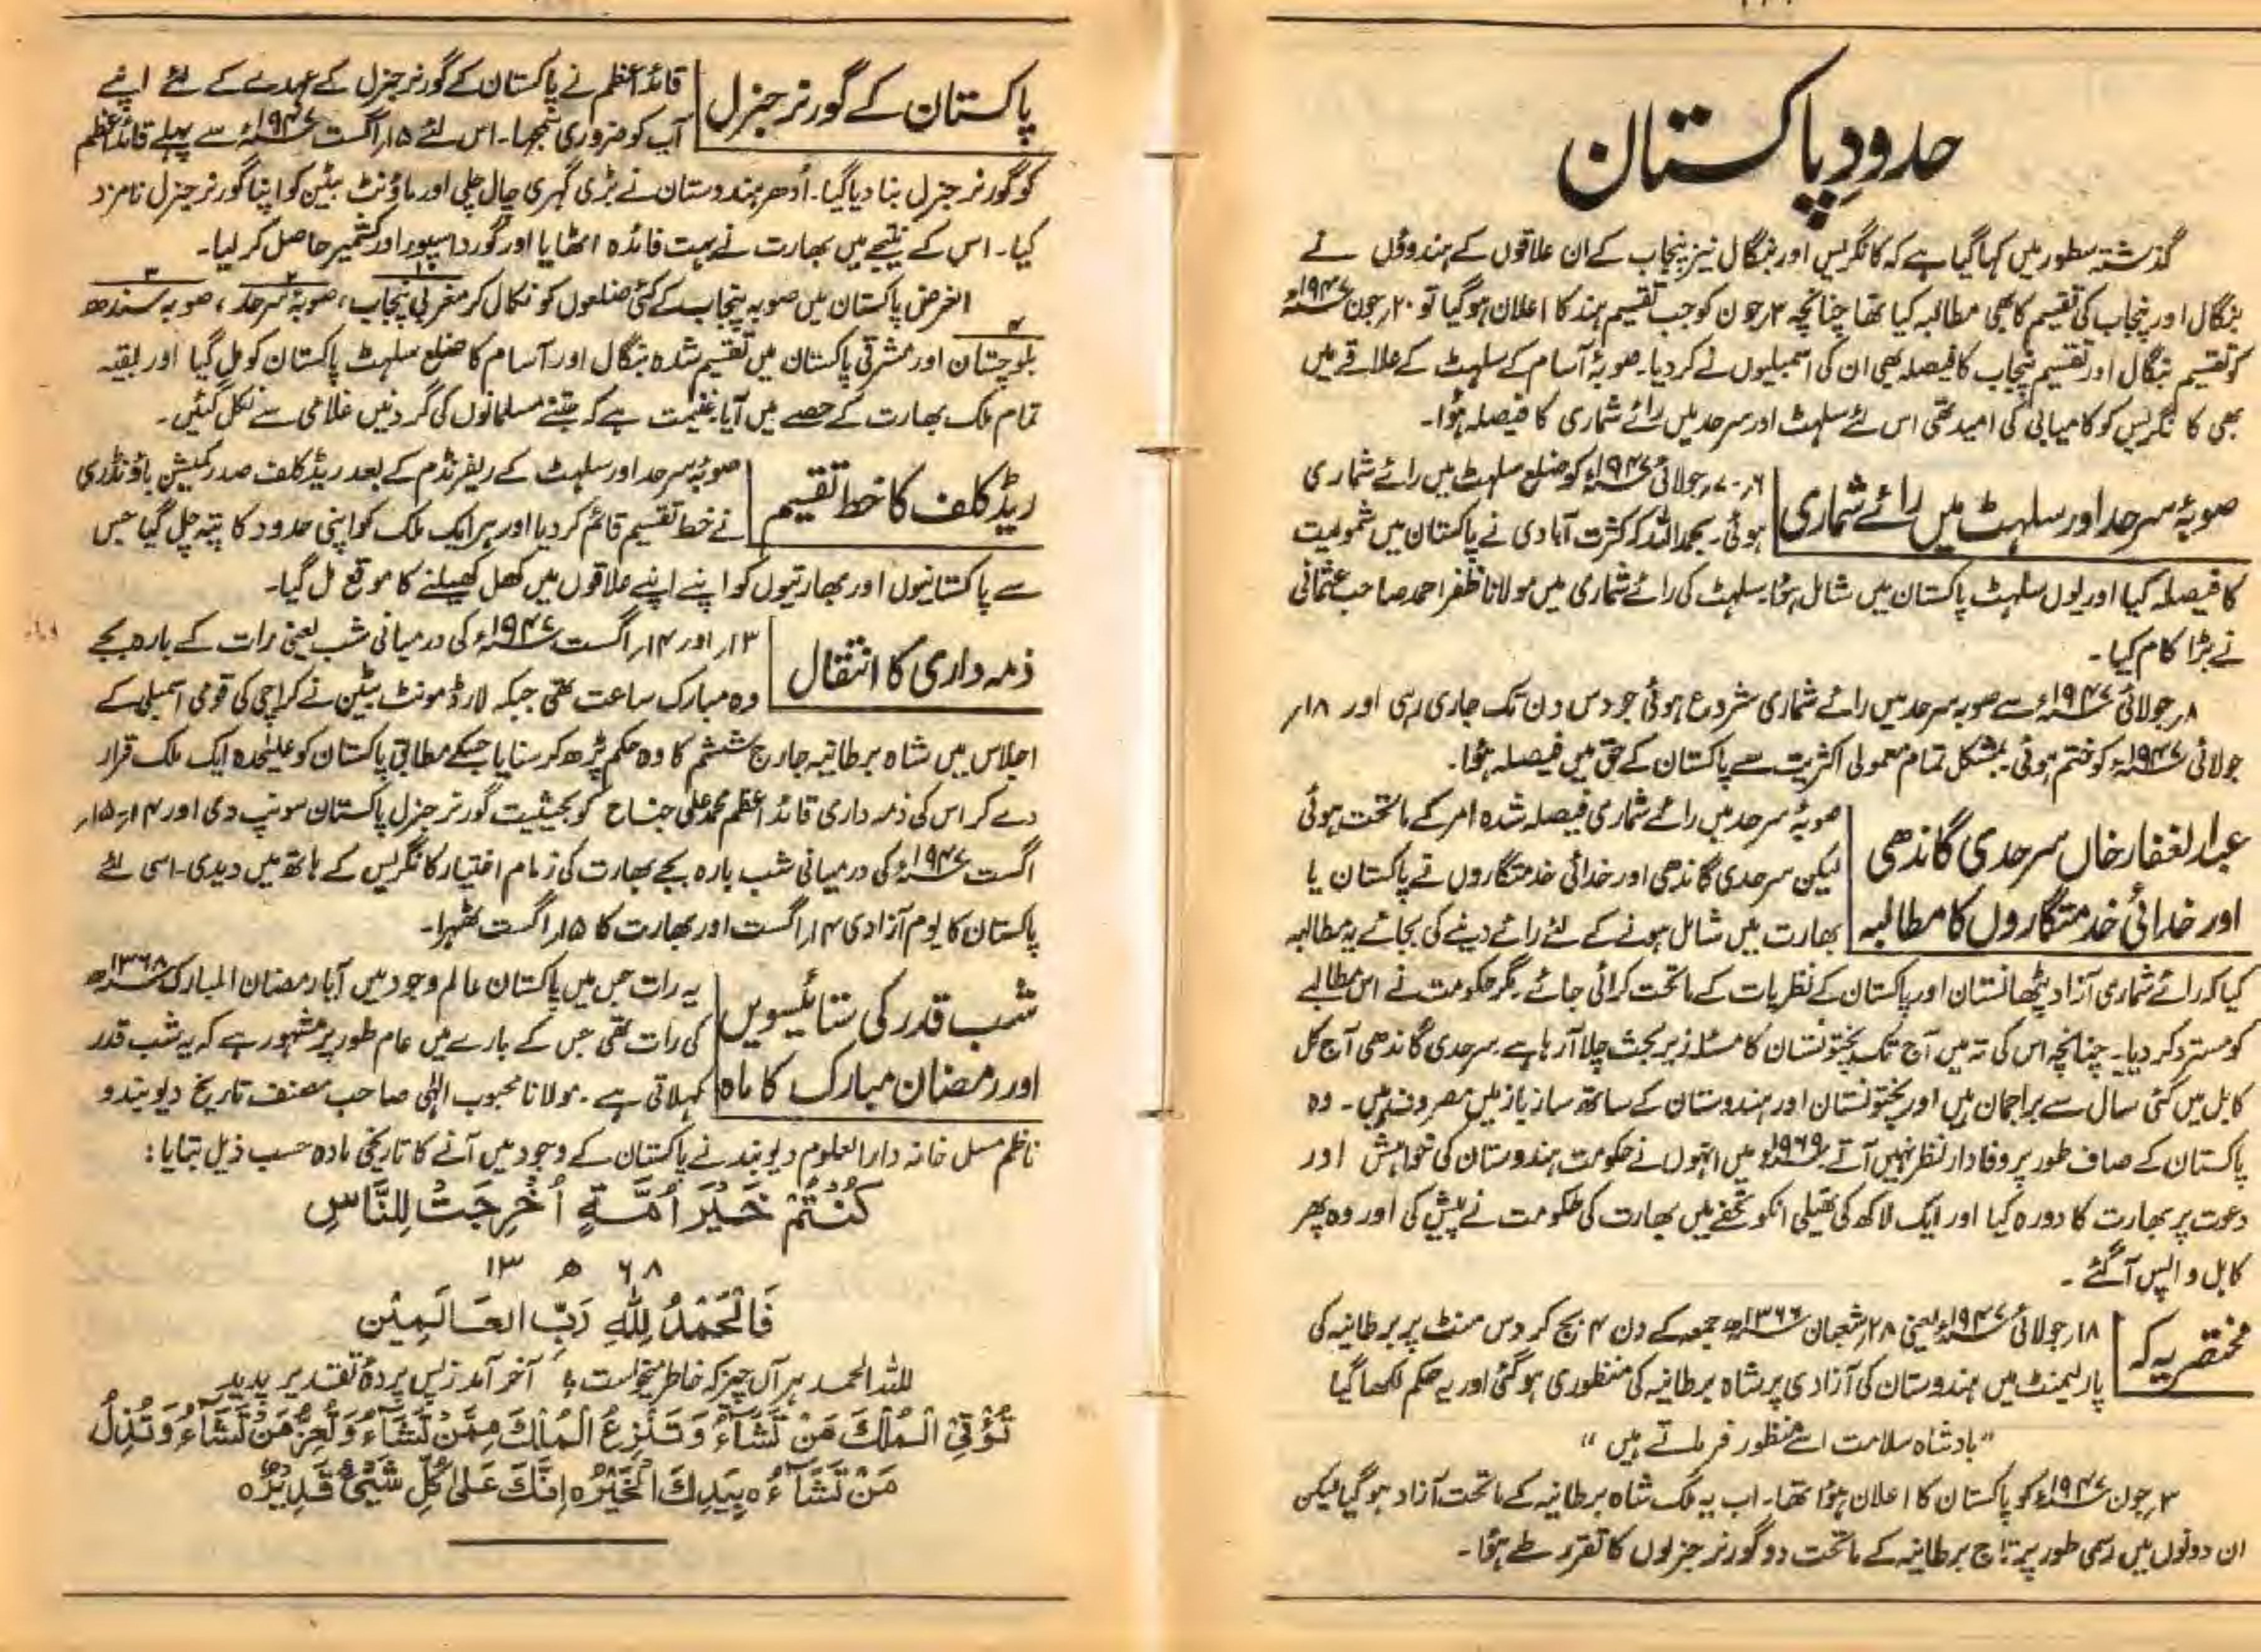 حدودِ پاکستان
گذشتہ سطور میں کہا گیا ہے کہ کانگریس اور بنگال نیز پنجاب کے ان علاقوں کے ہندوؤں نے
بنگال اور پنجاب کی تقسیم کا بھی مطالبہ کیا تھا چنانچہ ۳؍جون کو جب تقسیم ہند کا اعلان ہوگیا تو ۲۰؍جون ۱۹۴۷ء
کو تقسیم بنگال اور تقسیم پنجاب کا فیصلہ بھی ان کی اسمبلیوں نے کر دیا۔ صوبۂ آسام کے سلہٹ کے علاقے میں
بھی کانگریس کو کامیابی کی امید تھی اس لئے سلہٹ اور سرحد میں رائے شماری کا فیصلہ ہؤا۔
صوبۂ سرحد اور سلہٹ میں رائے شماری
۶؍۔۷؍جولائی ۱۹۴۷ء کو ضلع سلہٹ میں رائے شماری
ہوئی۔ بحمد اللہ کہ کثرت آبادی نے پاکستان میں شمولیت
کا فیصلہ کیا اور یوں سلہٹ پاکستان میں شامل ہؤا۔ سلہٹ کی رائے شماری میں مولانا ظفر احمد صاحب عثمانی
نے بڑا کام کیا۔
۸؍جولائی ۱۹۴۷ء سے صوبہ سرحد میں رائے شماری شروع ہوئی جو دس دن تک جاری رہی اور ۱۸؍
جولائی ۱۹۴۷ء کو ختم ہوئی۔ بمشکل تمام معمولی اکثریت سے پاکستان کے حق میں فیصلہ ہؤا۔
عبدالغفار خاں سرحدی گاندھی
اور خدائی خدمتگاروں کا مطالبہ
صوبۂ سرحد میں رائے شماری فیصلہ شدہ امر کے ماتحت ہوئی
لیکن سرحدی گاندھی اور خدائی خدمتگاروں نے پاکستان یا
بھارت میں شامل ہونے کے لئے رائے دینے کی بجائے یہ مطالبہ
کیا کہ رائے شماری آزاد پٹھانستان اور پاکستان کے نظریات کے ماتحت کرائی جائے۔ مگر حکومت نے اس مطالبے
کو مسترد کر دیا۔ چنانچہ اس کی تہ میں آج تک پختونستان کا مسئلہ زیر بحث چلا آرہا ہے۔ سرحدی گاندھی آج کل
کابل میں کئی سال سے براجمان ہیں اور پختونستان اور ہندوستان کے ساتھ ساز باز میں مصروف ہیں۔ وہ
پاکستان کے صاف طور پر وفادار نظر نہیں آتے۔ ۱۹۶۹ء میں انہوں نے حکومت ہندوستان کی خواہش اور
دعوت پر بھارت کا دورہ کیا اور ایک لاکھ کی تھیلی انکو تحفے میں بھارت کی حکومت نے پیش کی اور وہ پھر
کابل واپس آگئے۔
مختصر یہ کہ
۱۸؍جولائی ۱۹۴۷ء یعنی ۲۸؍شعبان ۱۳۶۶ھ جمعہ کے دن ۴ بج کر دس منٹ پر برطانیہ کی
پارلیمنٹ میں ہندوستان کی آزادی پر شاہ برطانیہ کی منظوری ہو گئی اور یہ حکم لکھا گیا
"بادشاہ سلامت اسے منظور فرماتے ہیں"
۳؍جون ۱۹۴۷ء کو پاکستان کا اعلان ہؤا تھا۔ اب یہ ملک شاہ برطانیہ کے ماتحت آزاد ہو گیا لیکن
ان دونوں میں رسمی طور پر تاج برطانیہ کے ماتحت دو گورنر جنرلوں کا تقرر طے ہؤا۔
پاکستان کے گورنر جنرل
قائداعظم نے پاکستان کے گورنر جنرل کے عہدے کے لئے اپنے
آپ کو ضروری سمجھا۔ اس لئے ۱۵؍اگست ۱۹۴۷ء سے پہلے قائداعظم
کو گورنر جنرل بنا دیا گیا۔ اُدھر ہندوستان نے بڑی گہری چال چلی اور ماؤنٹ بیٹن کو اپنا گورنر جنرل نامزد
کیا۔ اس کے نتیجے میں بھارت نے بہت فائدہ اٹھایا اور گورداسپور اور کشمیر حاصل کر لیا۔
الغرض پاکستان میں صوبہ پنجاب کے کئی ضلعوں کو نکال کر مغربی پنجاب ۱، صوبۂ سرحد ۲، صوبہ سندھ ۳
بلوچستان ۴ اور مشرقی پاکستان میں تقسیم شدہ بنگال اور آسام کا ضلع سلہٹ پاکستان کو مل گیا اور بقیہ
تمام ملک بھارت کے حصے میں آیا۔ غنیمت ہے کہ جتنے مسلمانوں کی گردنیں غلامی سے نکل گئیں۔
ریڈ کلف کا خط تقسیم
صوبۂ سرحد اور سلہٹ کے ریفرنڈم کے بعد ریڈ کلف صدر کمیشن باؤنڈری
نے خط تقسیم قائم کر دیا اور ہر ایک ملک کو اپنی حدود کا پتہ چل گیا جس
سے پاکستانیوں اور بھارتیوں کو اپنے اپنے علاقوں میں کھل کھیلنے کا موقع مل گیا۔
ذمہ داری کا انتقال
۱۳؍ اور ۱۴؍اگست ۱۹۴۷ء کی درمیانی شب یعنی رات کے بارہ بجے
وہ مبارک ساعت تھی جبکہ لارڈ مونٹ بیٹن نے کراچی کی قومی اسمبلی کے
اجلاس میں شاہ برطانیہ جارج ششم کا وہ حکم پڑھ کر سنایا جسکے مطابق پاکستان کو علیحدہ ایک ملک قرار
دے کر اس کی ذمہ داری قائد اعظم محمد علی جناح کو بحیثیت گورنر جنرل پاکستان سونپ دی اور ۱۴؍۔۱۵؍
اگست ۱۹۴۷ء کی درمیانی شب بارہ بجے بھارت کی زمام اختیار کانگریس کے ہاتھ میں دیدی۔ اسی لئے
پاکستان کا یوم آزادی ۱۴؍اگست اور بھارت کا ۱۵؍اگست ٹھہرا۔
شب قدر کی ستائیسویں
اور رمضان مبارک کا ماہ
یہ رات جس میں پاکستان عالم وجود میں آیا رمضان المبارک ۱۳۶۸ھ
کی رات تھی جس کے بارے میں عام طور پر مشہور ہے کہ یہ شب قدر
کہلاتی ہے۔ مولانا محبوب الٰہی صاحب مصنف تاریخ دیوبند و
ناظم مسل خانہ دارالعلوم دیوبند نے پاکستان کے وجود میں آنے کا تاریخی مادہ حسب ذیل بتایا:
كُنْتُمْ خَيْرَ اُمَّةٍ اُخْرِجَتْ لِلنَّاسِ
۱۳ ھ ۶۸
فَالْحَمْدُ لِلّٰهِ رَبِّ الْعَالَمِيْن
للہ الحمد ہر آں چیز کہ خاطر میخواست آخر آمد ز پس پردۂ تقدیر پدید
تُؤْتِي الْمُلْكَ مَنْ تَشَآءُ وَتَنْزِعُ الْمُلْكَ مِمَّنْ تَشَآءُ وَتُعِزُّ مَنْ تَشَآءُ وَتُذِلُّ
مَنْ تَشَآءُ ه بِيَدِكَ الْخَيْرُ ه اِنَّكَ عَلٰى كُلِّ شَيْئٍ قَدِيْرٌ ه